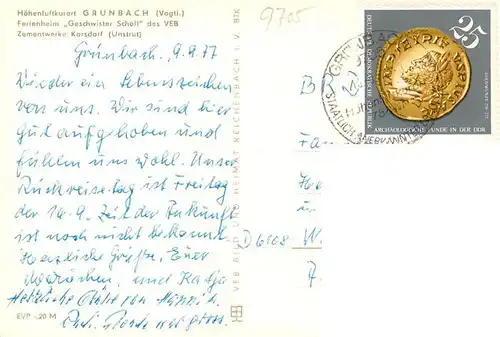 Höhenluftkurort GRÜNBACH (Vogtl.)
Ferienheim „Geschwister Scholl" des VEB
Zementwerke Karsdorf (Unstrut)
Grünbach, 9.9.77
Wieder ein Lebenszeichen
von uns. Wir sind hier
gut aufgehoben und
fühlen uns wohl. Unser
Rückreisetag ist Freitag
der 16.9. Zeit der Ankunft
ist noch nicht bekannt.
Herzliche Grüße, Euer
und Katja
Herzliche Grüße von
EVP -,20 M
VEB BILD UND HEIMAT REICHENBACH I. V. BIK
9705
25
DEUTSCHE DEMOKRATISCHE REPUBLIK
ARCHÄOLOGISCHE FUNDE IN DER DDR
STAATLICH ANERKANNTER
B
Fa
He
u
D 6908 W.
A